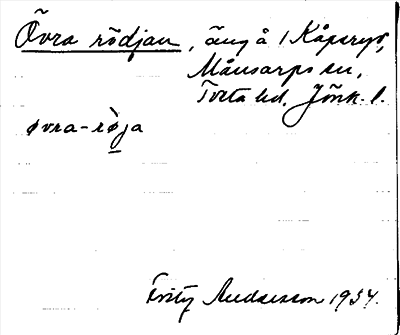 Övra rödjan, äng å 1 Kåperyd,
Månsarps sn,
Tveta hd, Jönk. l.
øvra-rø̀ja
Fritz Andersson 1934.